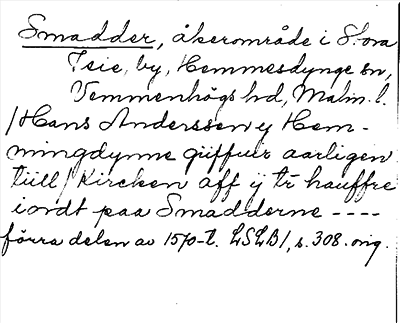 Smadder, åkerområde i Stora
Isie, by, Hemmesdynge sn,
Vemmenhögs hd, Malm. l.
/Hans Anderssen y Hem-
mingdynne giiffuer aarligen
tiill/ Kircken aff ij tr hauffre
iordt paa Smadderne ----
förra delen av 1570-t. LSLB1, s. 308. orig.